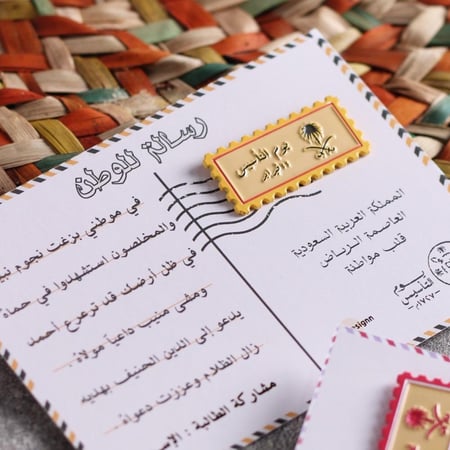 رسالة للوطن
في موطني بزغت نجوم
والمخلصون استشهدوا في حماة
في ظل أرضك قد ترعرع أحمد
ومشى منيب داعيًا مولاه
يدعو إلى الدين الحنيف بهديه
زال الظلام وعززت دعواه
مشاركة الطالبة :
يوم التأسيس
المملكة العربية السعودية
العاصمة الرياض
قلب مواطنة
يوم
التأسيس
١٧٢٧م
signn